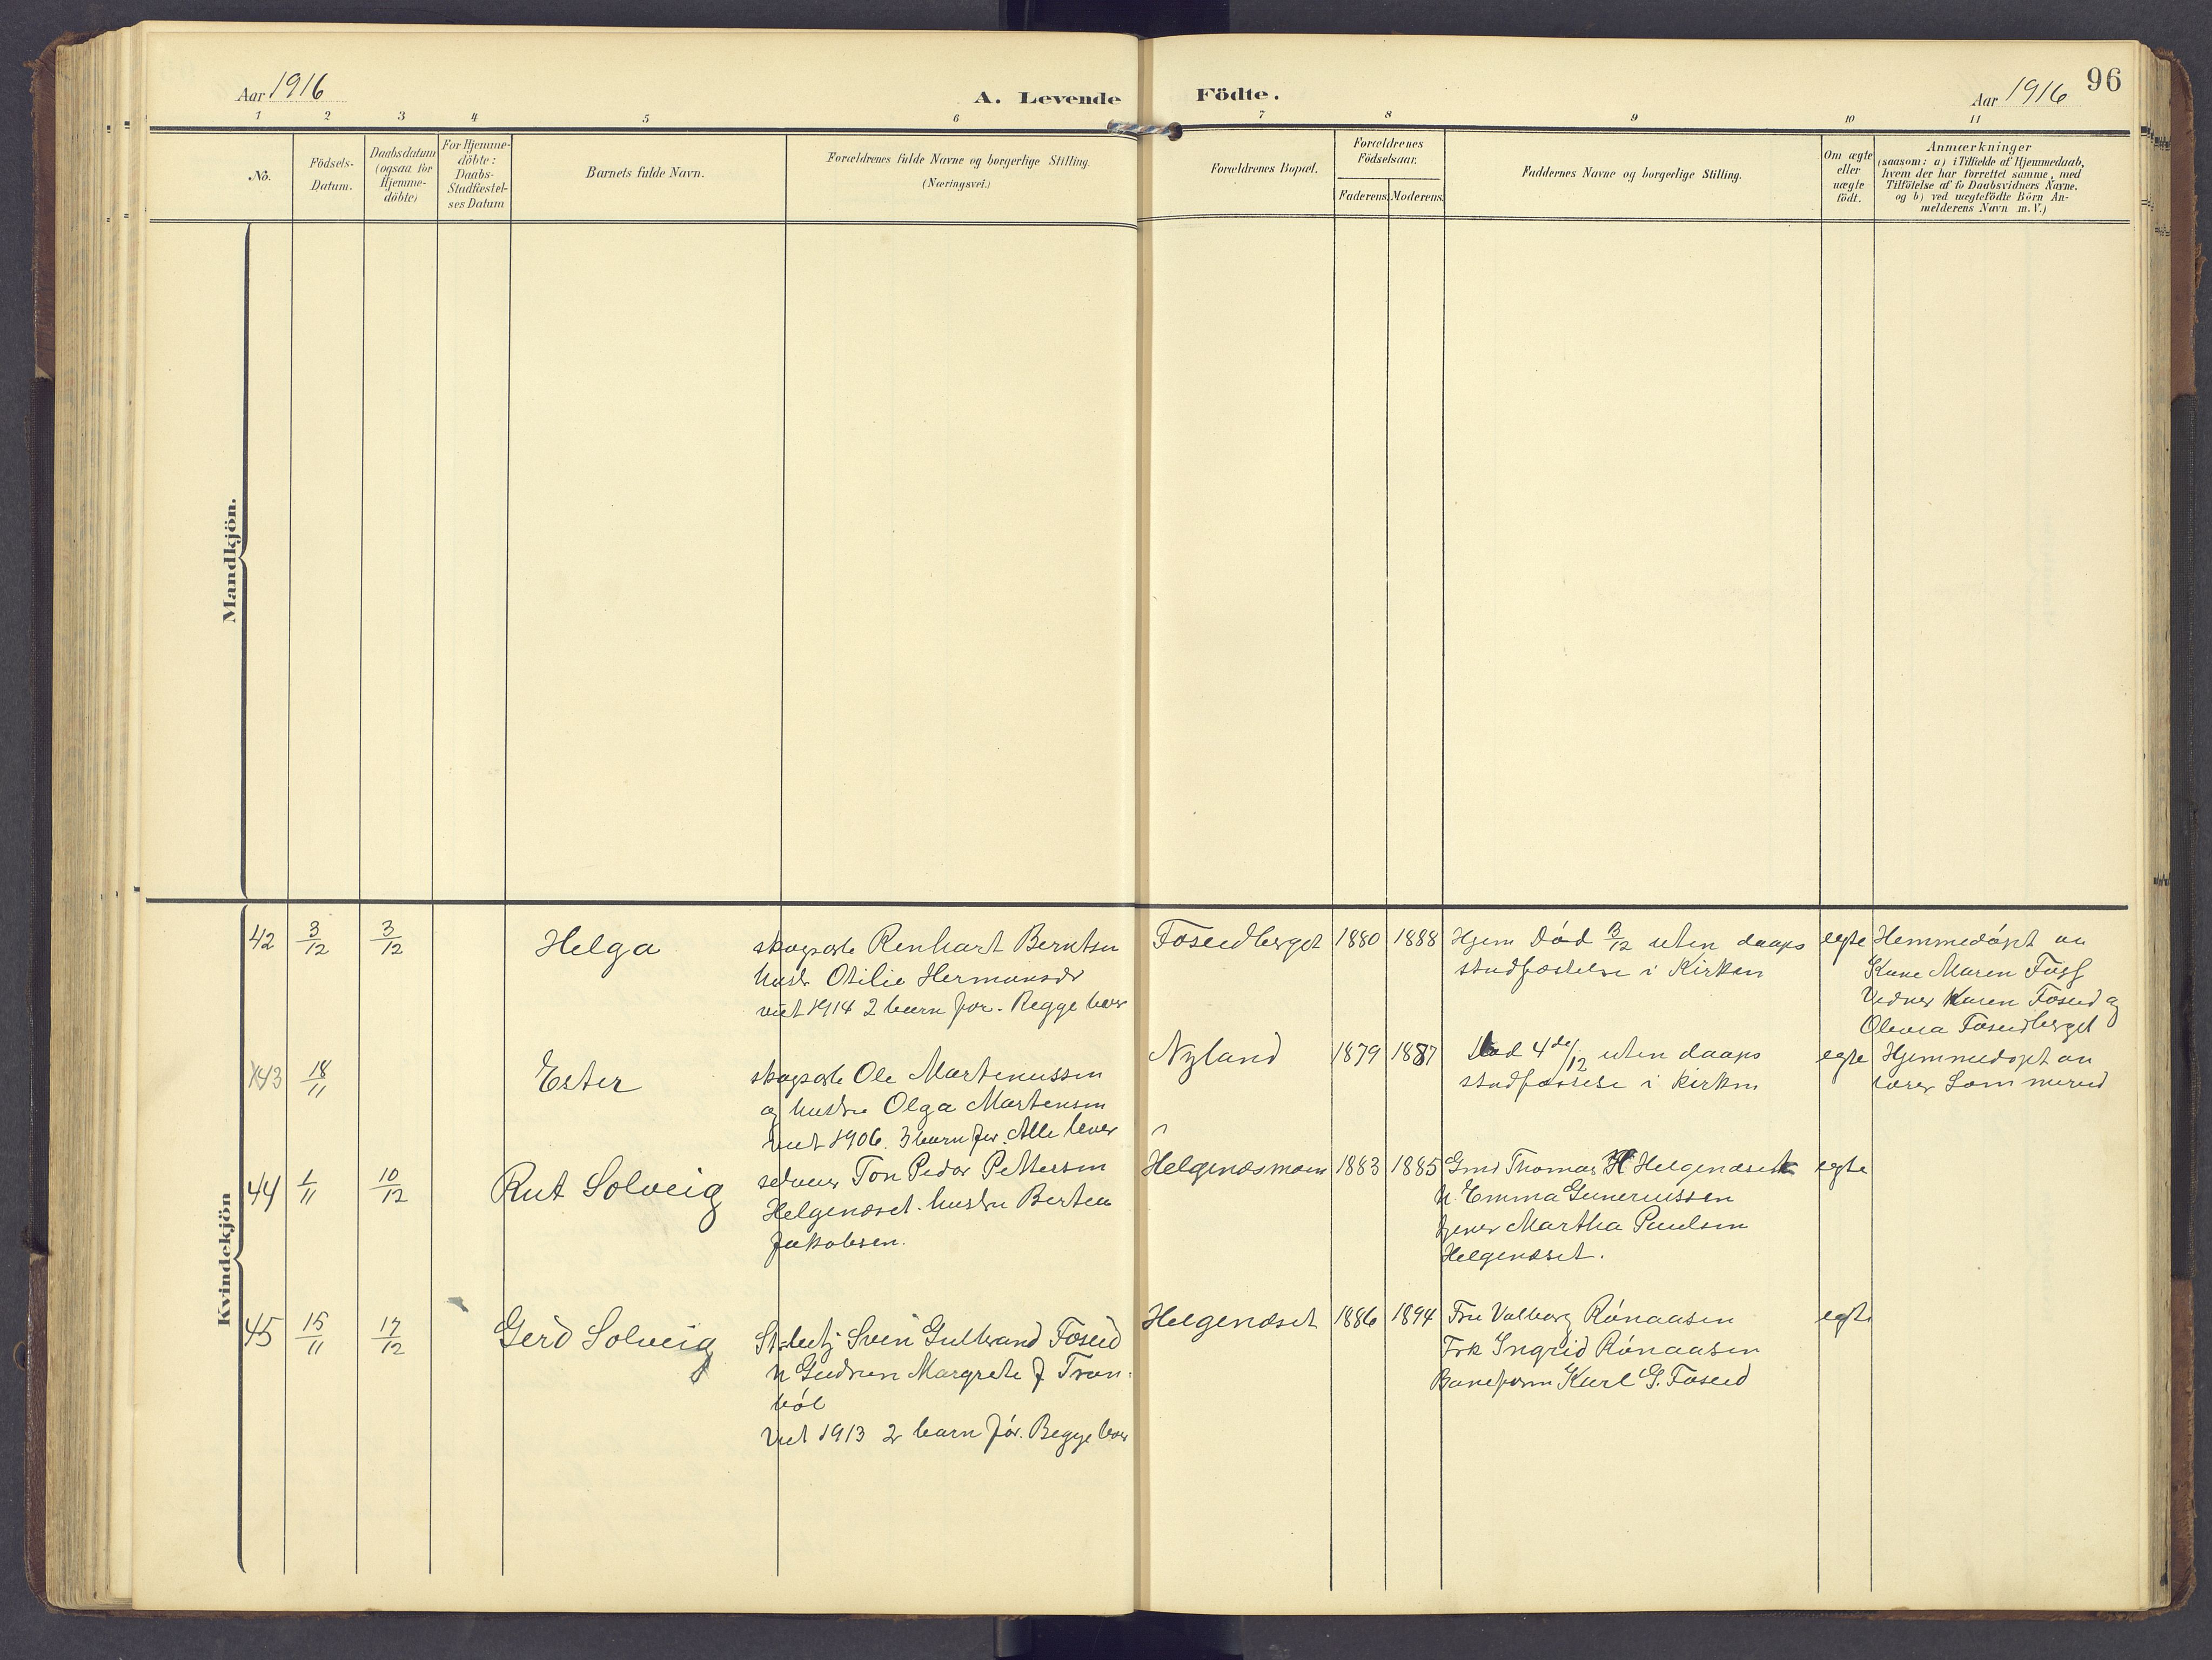 Aar 1916
A. Levende
Födte.
Aar 1916
96
1 2 3 4 5 6 7 8 9 10 11
No.
Födsels-
Datum.
Daabsdatum
(ogsaa for
Hjemme-
döbte)
For Hjemme-
döbte:
Daabs-
Stadfæstel-
ses Datum
Barnets fulde Navn.
Forældrenes fulde Navne og borgerlige Stilling.
(Næringsvei.)
Forældrenes Bopæl.
Forældrenes
Födselsaar.
Faderens. Moderens.
Faddernes Navne og borgerlige Stilling.
Om ægte
eller
uægte
födt.
Anmærkninger
(saasom: a) i Tilfælde af Hjemmedaab,
hvem der har forrettet samme, med
Tilföielse af to Daabsvidners Navne.
og b) ved uægtefödte Börn An-
melderens Navn m.V.)
Mandkjön.
Kvindekjön
42 3/12 3/12 Helga
skogsarb Renhart Berntsen
Hustr Otilie Hermansdr
viet 1914 2 barn før. Begge lever
Foseidberget 1880 1888
Hjem Død 3/12 uten daaps
stadfæstelse i Kirken
egte
Hemmedøpt av
Kone Maren Foss
Vidner Karen Foseid og
Olevia Foseidberget
43 18/11 Ester
skogsarb Ole Martenussen
og hustru Olga Martensen
viet 1906. 3 barn før. Alle lever
Nyland 1879 1887
Død 4de/12 uten daaps
stadfæstelse i Kirken
egte
Hjemmedøpt av
lærer Sommerud
44 1/11 10/12 Rut Solveig
selveier Ton Peder Pettersen
Helgenæset. hustru Bertea
Jakobsen.
Helgenæsmoen 1883 1885
Grd Thomas H Helgenæset
h. Emma Gunerussen
tjener Martha Paulsen
Helgenæset.
egte
45 15/11 17/12 Gerd Solveig
St betj Svein Gulbrand Foseid
h Gudrun Margrete f Tran-
bøl
Viet 1913 2 barn før. Begge lever
Helgenæset 1886 1894
Fru Valborg Rønaasen
Frk Ingrid Rønaasen
Baneform Karl G. Foseid
egte